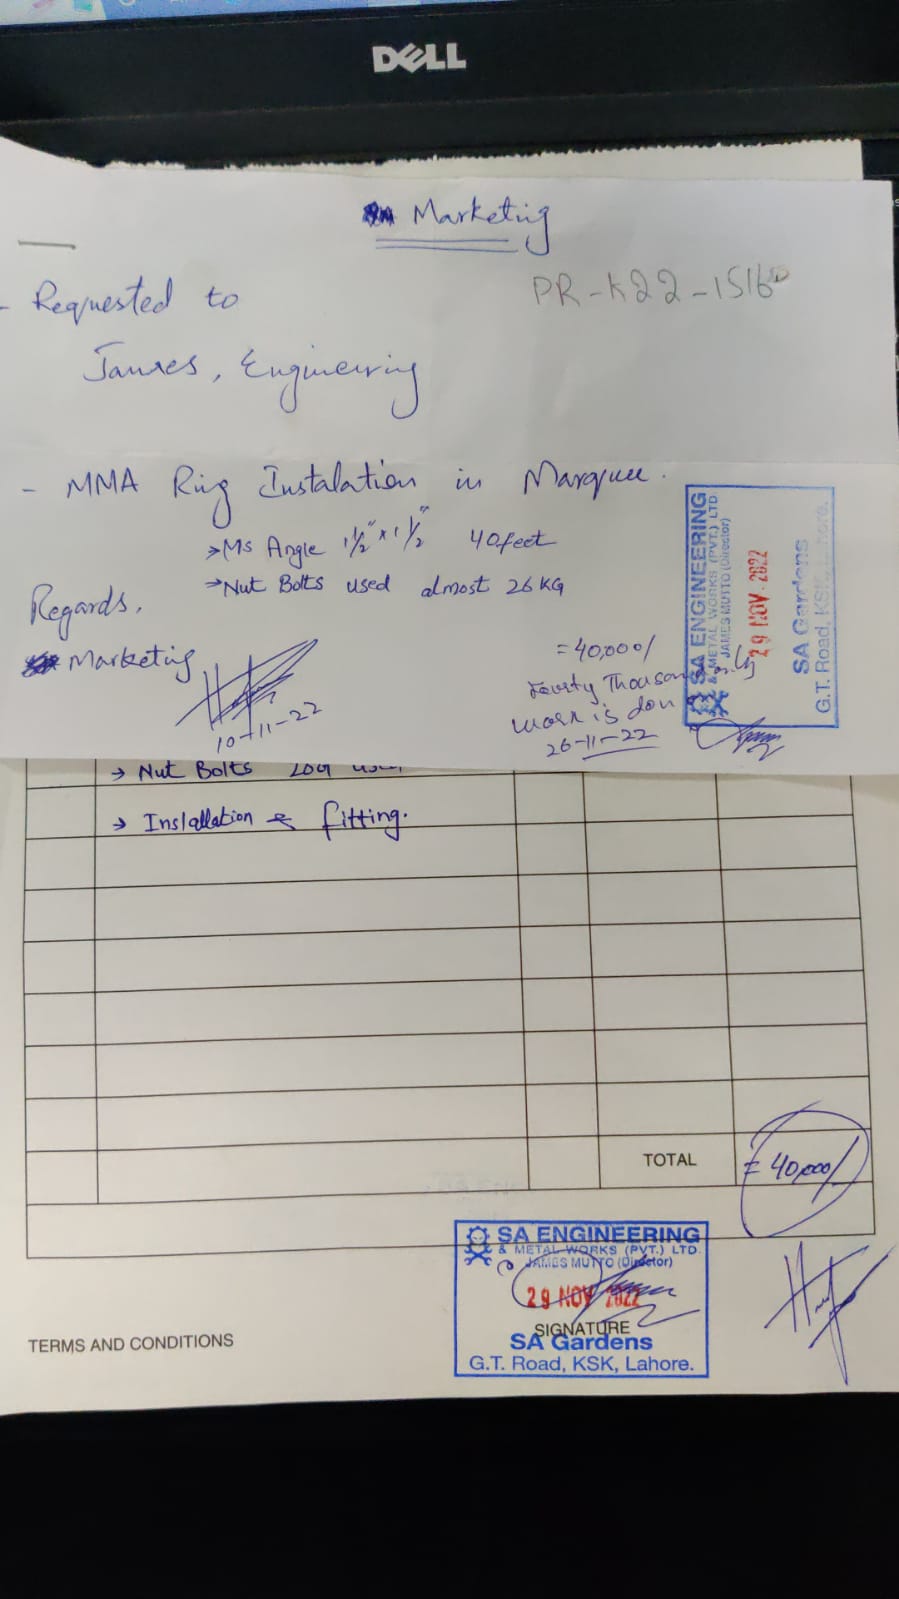 DELL
Marketing
PR-K22-1516
- Requested to
James, Engineering
- MMA Ring Instalation in Marquee.
→ Ms Angle 1½" x 1½" 40feet
→ Nut Bolts used almost 26 KG
Regards,
Marketing
10-11-22
= 40,000/
Fourty Thousand only
work is done
26-11-22
SA ENGINEERING
& METAL WORKS (PVT.) LTD.
JAMES MUTTO (Director)
29 NOV 2022
SA Gardens
G.T. Road, KSK, Lahore.
→ Nut Bolts
→ Installation & fitting.
TOTAL = 40,000/
SA ENGINEERING
& METAL WORKS (PVT.) LTD.
JAMES MUTTO (Director)
29 NOV 2022
SIGNATURE
SA Gardens
G.T. Road, KSK, Lahore.
TERMS AND CONDITIONS